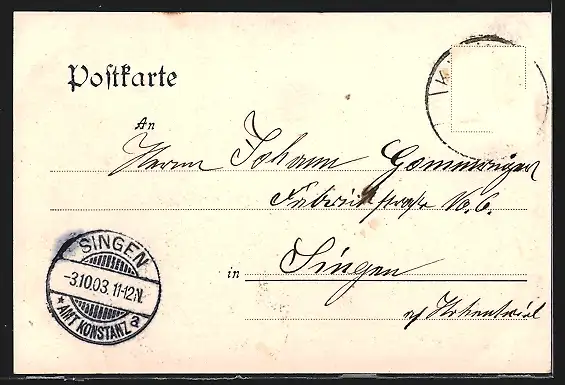 Postkarte
An
Herrn Johann Gommeringer
Fabrikstraße No. 6.
in Singen
a/ Hohentwiel
SINGEN
-3.10.03. 11-12.N.
* AMT KONSTANZ a
K